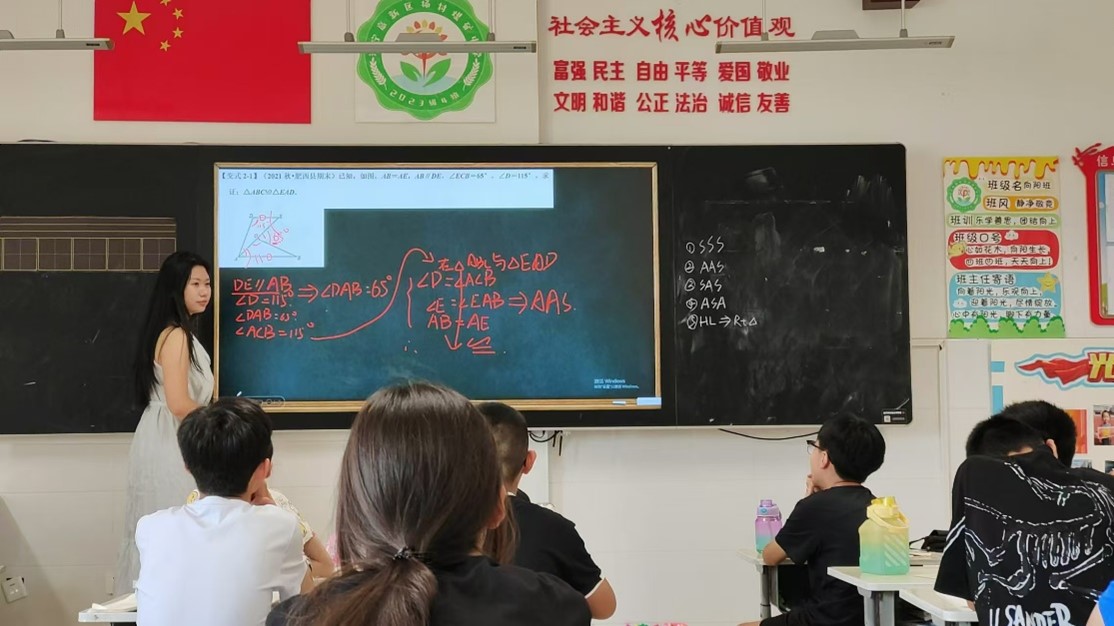 社会主义核心价值观
富强 民主 自由 平等 爱国 敬业
文明 和谐 公正 法治 诚信 友善
2023级4班
【变式2-1】（2021秋•肥西县期末）已知：如图，AB=AE，AB∥DE，∠ECB=65°，∠D=115°，求
证：△ABC≌△EAD．
DE∥AB
∠D=115°
⇒∠DAB=65°
∠DAB=65°
∠ACB=115°
在△ABC与△EAD
∠D=∠ACB
∠E=∠EAB ⇒AAS.
AB=AE
①SSS
② AAS
③ SAS
④ ASA
⑤HL⇒Rt△
激活 Windows
班级名 向阳班
班风 静净敬竞
班训 乐学善思，团结向上
班级口号
心如花木，向阳生长
四班四班，天天向上！
班主任寄语
向着阳光，乐观向上
迎着阳光，尽情绽放
心中有阳光，脚下有力量
信
光
SANDER